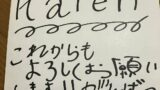 Karen
これからも
よろしくおっ願い
します!! がんばっ